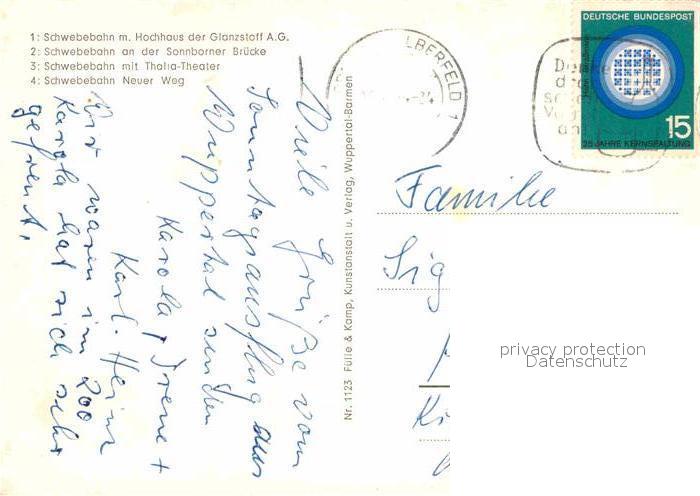 1: Schwebebahn m. Hochhaus der Glanzstoff A.G.
2: Schwebebahn an der Sonnborner Brücke
3: Schwebebahn mit Thalia-Theater
4: Schwebebahn Neuer Weg
Viele Grüße vom
Sonntagsausflug aus
Wuppertal senden
Karola, Irene +
Karl-Heinz
Wir waren im Zoo
Karola hat sich sehr
gefreut.
Nr. 1123 Fülle & Kamp, Kunstanstalt u. Verlag, Wuppertal-Barmen
LBERFELD 1
DEUTSCHE BUNDESPOST
15
25 JAHRE KERNSPALTUNG
Familie
Sig
privacy protection
Datenschutz